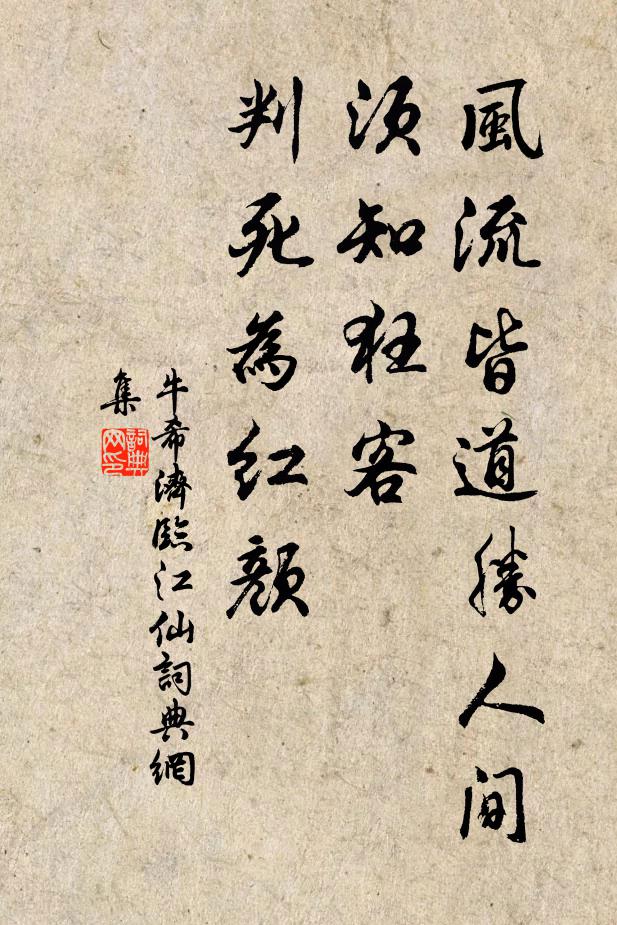 風流皆道勝人间
須知狂客
判死為红顏
牛希濟臨江仙詞典網
集
詞典
网印